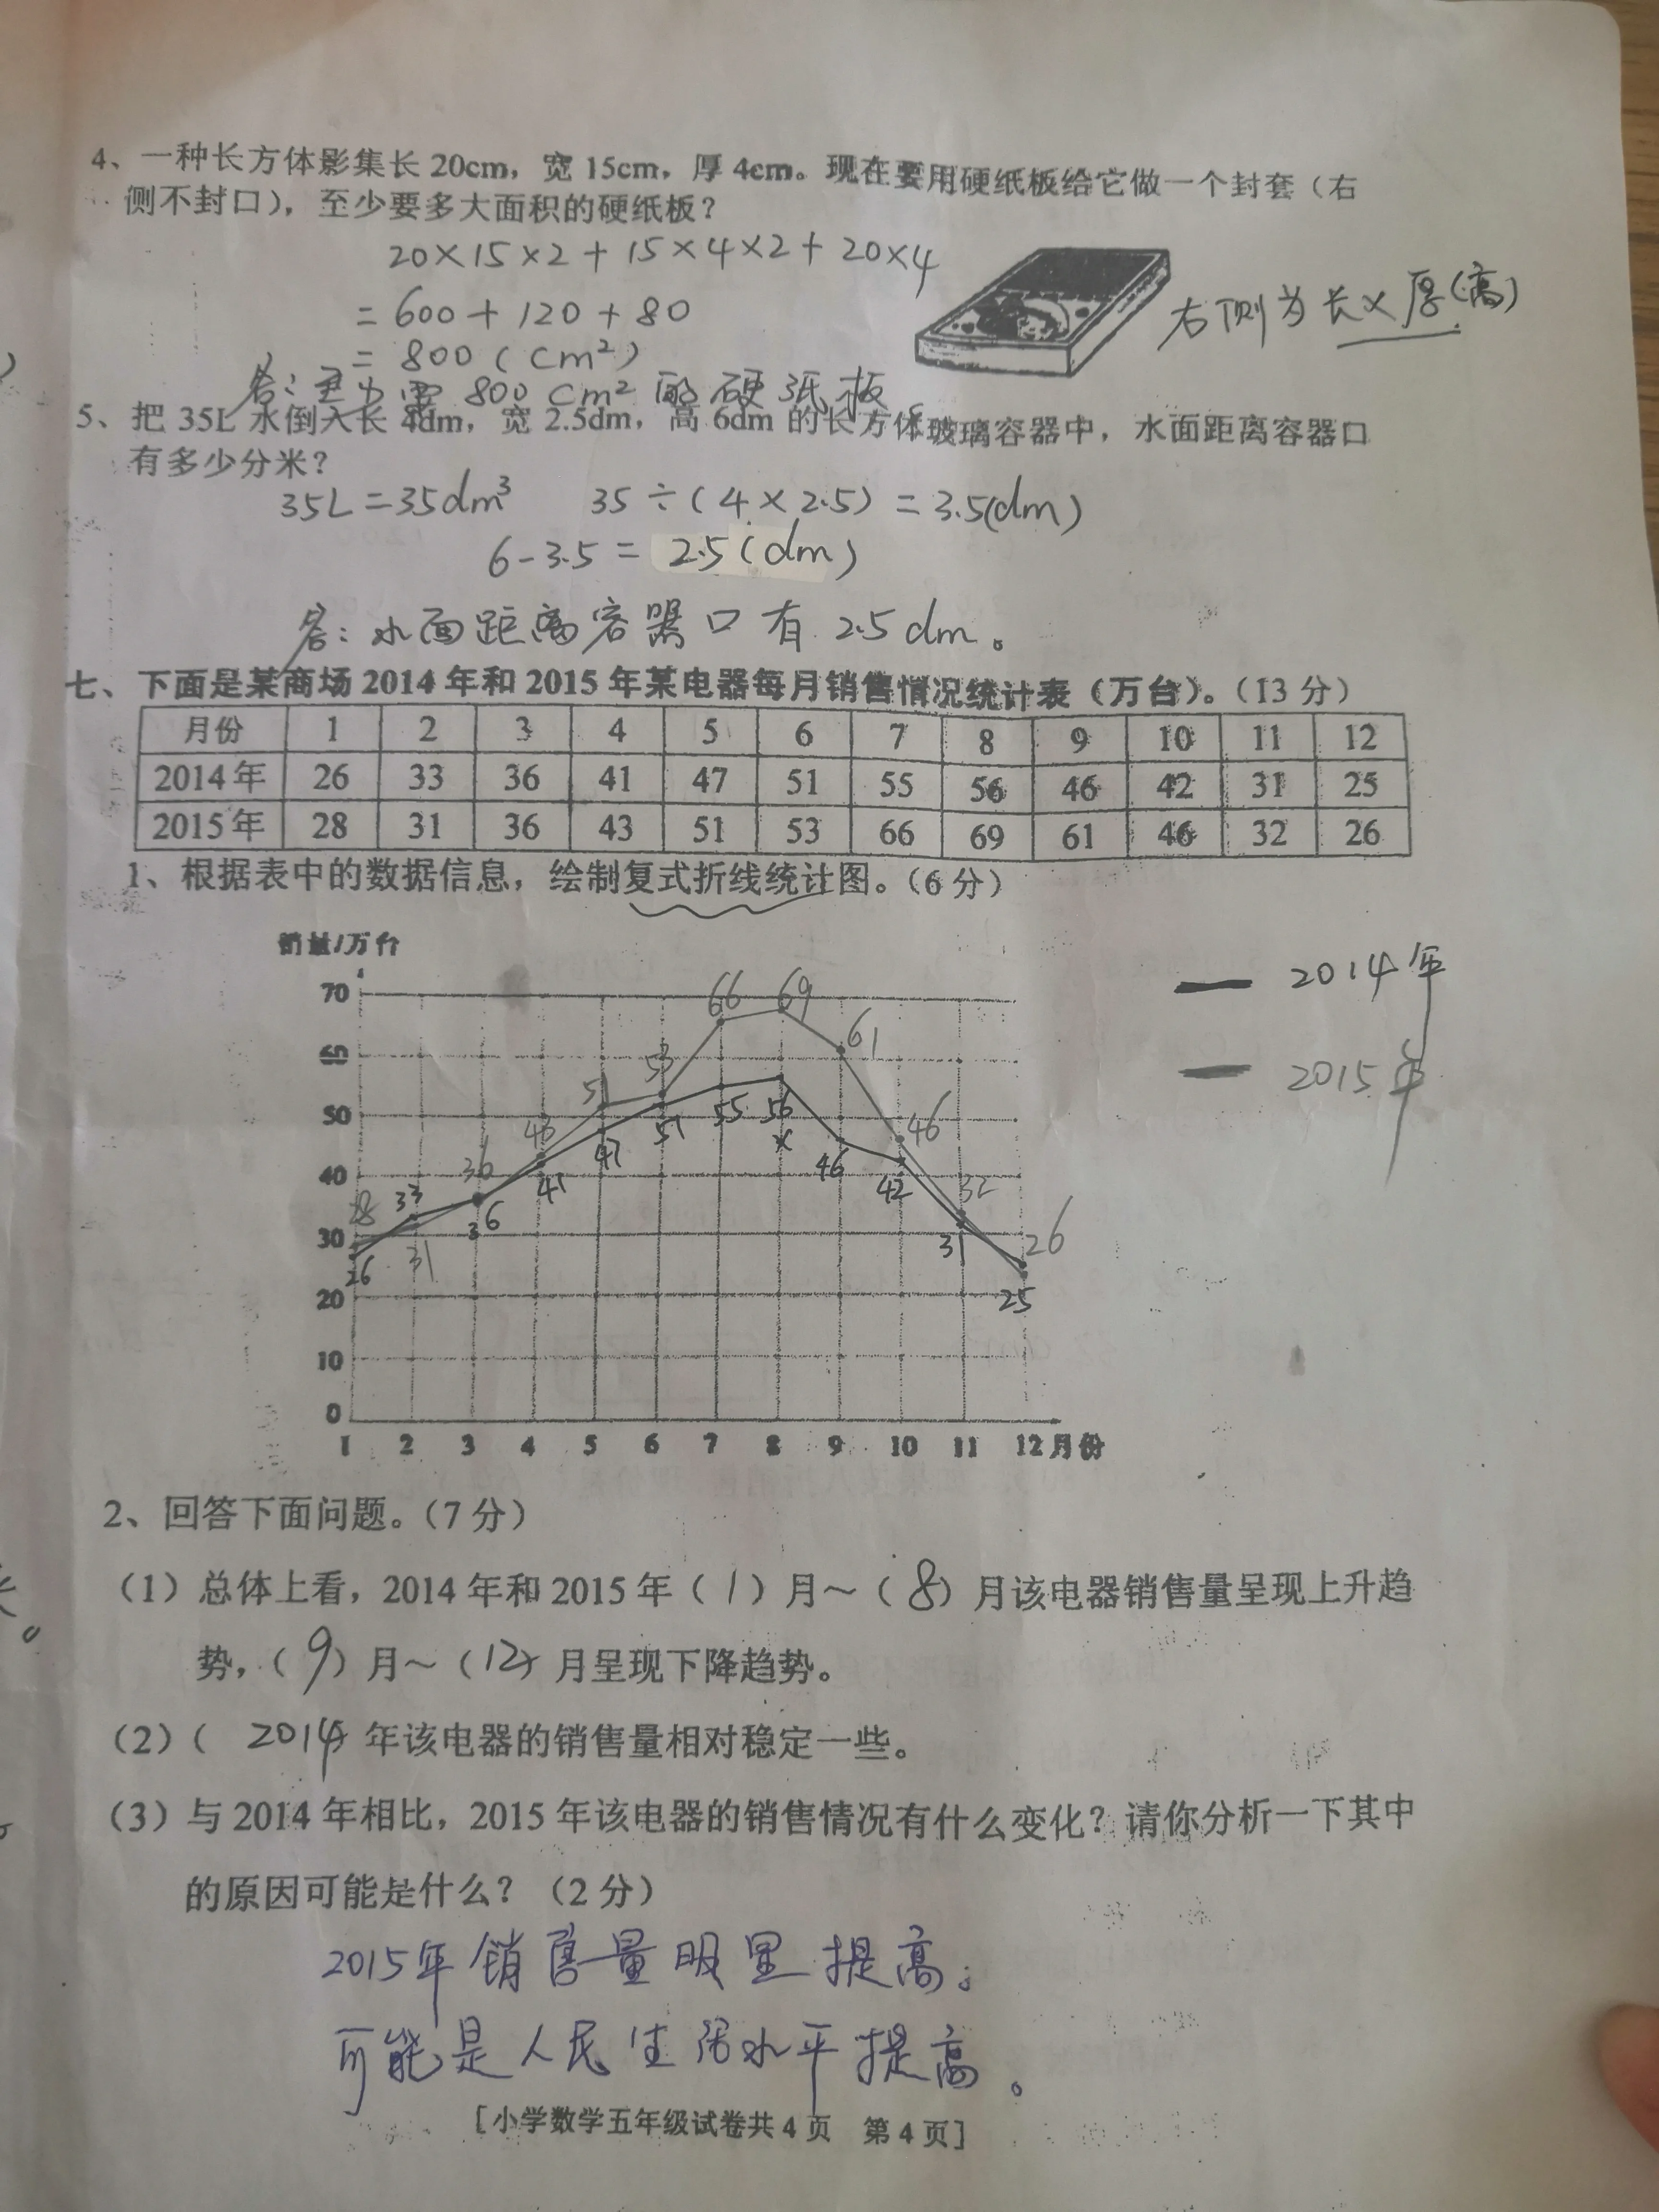 4、一种长方体影集长20cm，宽15cm，厚4cm。现在要用硬纸板给它做一个封套（右
侧不封口），至少要多大面积的硬纸板？
20×15×2+15×4×2+20×4
=600+120+80
=800(cm²)
答：至少需800cm²的硬纸板。
右侧为长×厚(高)
5、把35L水倒入长4dm，宽2.5dm，高6dm的长方体玻璃容器中，水面距离容器口
有多少分米？
35L=35dm³ 35÷(4×2.5)=3.5(dm)
6-3.5=2.5(dm)
答：水面距离容器口有2.5dm。
七、下面是某商场2014年和2015年某电器每月销售情况统计表（万台）。（13分）
月份 1 2 3 4 5 6 7 8 9 10 11 12
2014年 26 33 36 41 47 51 55 56 46 42 31 25
2015年 28 31 36 43 51 53 66 69 61 46 32 26
1、根据表中的数据信息，绘制复式折线统计图。（6分）
销量/万台
2014年
2015年
70
60
50
40
30
20
10
0
66 69
61
53
51
55 56
51
47
46
46
43
42
41
36
36
33
32
31
31
28
26
26
25
1 2 3 4 5 6 7 8 9 10 11 12月份
2、回答下面问题。（7分）
（1）总体上看，2014年和2015年（1）月～（8）月该电器销售量呈现上升趋
势，（9）月～（12）月呈现下降趋势。
（2）（2014）年该电器的销售量相对稳定一些。
（3）与2014年相比，2015年该电器的销售情况有什么变化？请你分析一下其中
的原因可能是什么？（2分）
2015年销售量明显提高。
可能是人民生活水平提高。
［小学数学五年级试卷共4页 第4页］